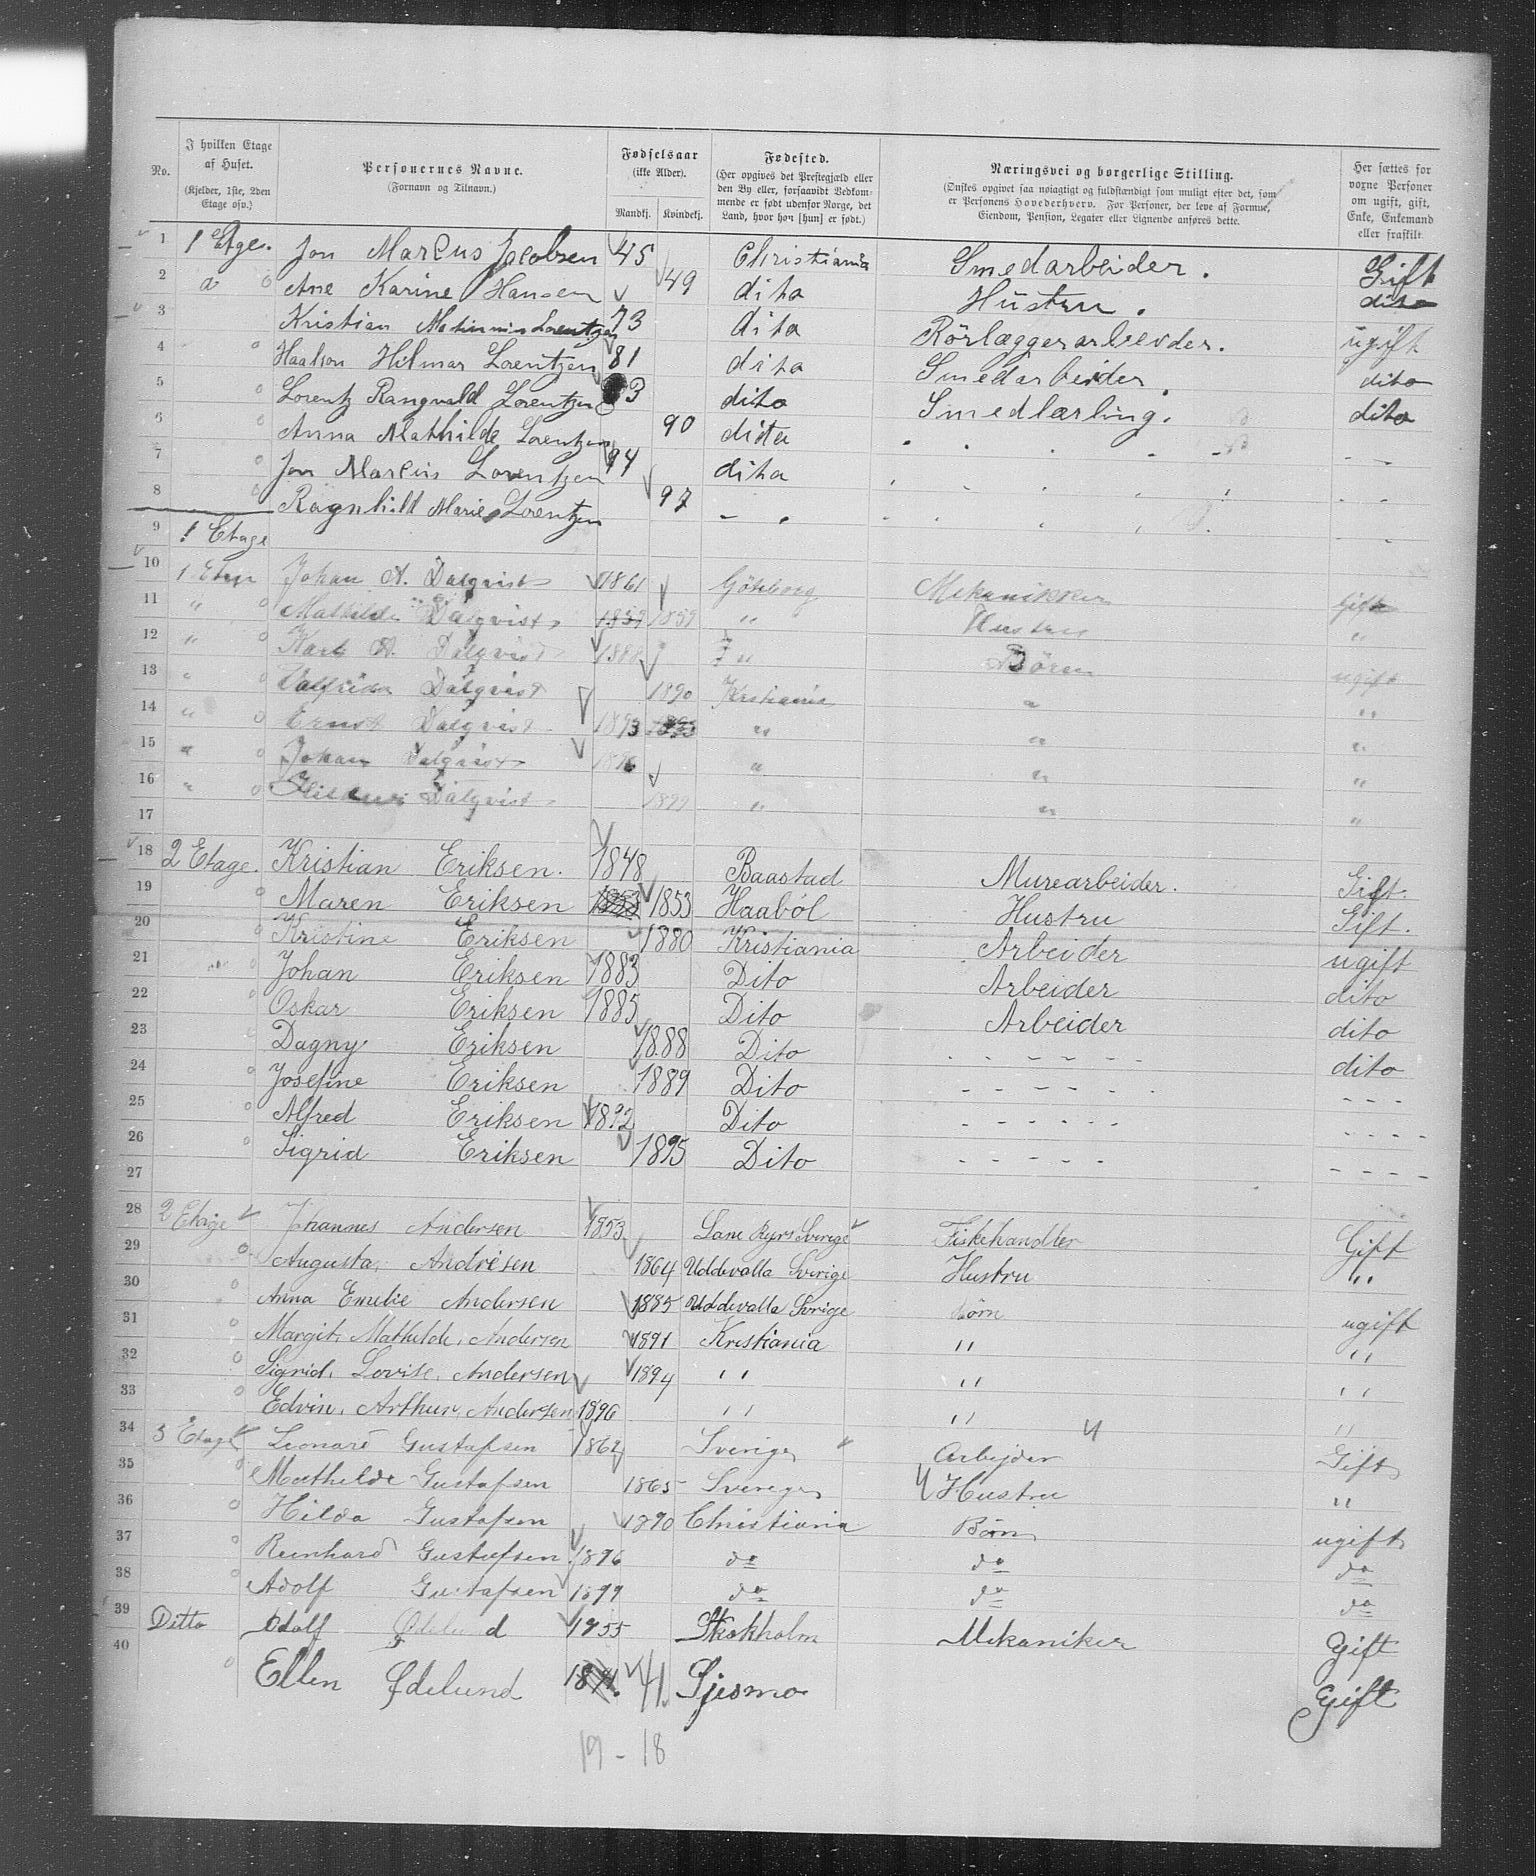 No.
I hvilken Etage af Huset.
(Kjelder, 1ste, 2den Etage osv.)
Personernes Navne.
(Fornavn og Tilnavn.)
Fødselsaar
(ikke Alder).
Mandkj. Kvindekj.
Fødested.
(Her opgives det Prestegjæld eller den By eller, forsaavidt Vedkommende er født udenfor Norge, det Land, hvor han [hun] er født.)
Næringsvei og borgerlige Stilling.
(Ønskes opgivet saa nøiagtigt og fuldstændigt som muligt efter det, som er Personens Hovederhverv. For Personer, der leve af Formue, Eiendom, Pension, Legater eller Lignende anføres dette.
Her sættes for voxne Personer om ugift, gift, Enke, Enkemand eller fraskilt.
1 1 Etge. Jon Marcus Jacobsen 45 Christiania Smedarbeider. Gift
2 d Ane Karine Hansen 49 dito Hustru. dito
3 Kristian Lorentzen 73 dito Rörlæggerarbeider. ugift
4 Haakon Hilmar Lorentzen 81 dito Smedarbeider. dito
5 Lorentz Rangvald Lorentzen 83 dito Smedlærling. dito
6 Anna Mathilde Lorentzen 90 dito
7 Jon Marcus Lorentzen 94 dito
8 Ragnhild Marie Lorentzen 97 - .
9 1 Etage
10 1 Etage Johan A. Dalqvist 1861 Götborg Mekanikker Gift
11 " Mathilda Dalqvist 1859 1859 " Hustru "
12 " Karl A. Dalqvist 188 " Börn ugift
13 " Dalqvist 1890 Kristiania " "
14 " Ernst Dalqvist 1893 " " "
15 " Johan Dalqvist 1896 " " "
16 " Dalqvist 1899 " " "
17
18 2 Etage. Kristian Eriksen. 1848 Baastad Murearbeider. Gift.
19 Maren Eriksen 1853 1853 Haaböl Hustru Gift.
20 Kristine Eriksen 1880 Kristiania Arbeider ugift
21 Johan Eriksen 1883 Dito Arbeider dito
22 Oskar Eriksen 1885 Dito Arbeider dito
23 Dagny Eriksen 1888 Dito - - - - - - dito
24 Josefine Eriksen 1889 Dito - - - - - - - - -
25 Alfred Eriksen 1892 Dito - - - - - - - - - -
26 Sigrid Eriksen 1895 Dito - - - - - - - - -
27
28 2 Etage Johannes Andersen 1853 Lane Ryrs Sverige Fiskehandler Gift
29 Augusta, Andrésen 1864 Uddevalla Sverige Hustru "
30 Anna Emelie Andersen 1885 Uddevalla Sverige börn ugift
31 Margit, Mathilde, Andersen 1891 Kristiania " "
32 Sigrid, Lovise, Andersen 1894 " " "
33 Edvin, Arthur, Andersen 1896 " " "
34 3 Etage Leonard Gustafsen 1862 Sverige Arbejder Gift
35 Mathelde Gustafsen 1865 Sverege Hustru "
36 Hilda Gustafsen 1890 Christiania Børn ugift
37 Reinhard Gustafsen 1896 do do do
38 Adolf Gustafsen 1899 do do do
39 Ditto Adolf Ødelund 1855 Stokholm Mekaniker Gift
40 Ellen Ødelund 1841. 41. Gift
19 - 18